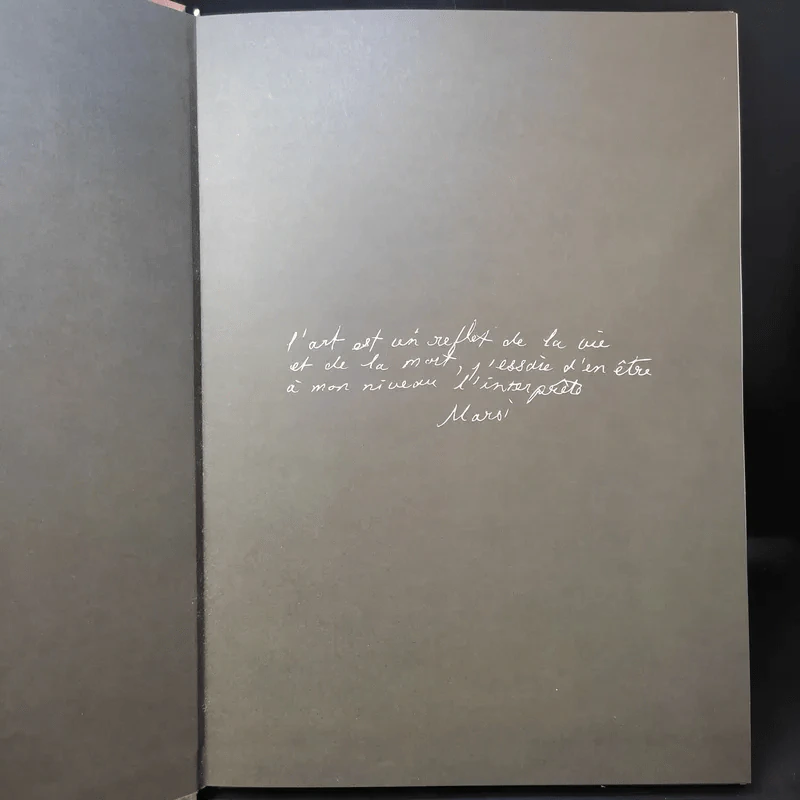 l'art est un reflet de la vie
et de la mort, j'essaie d'en être
à mon niveau l'interprète
Marsi